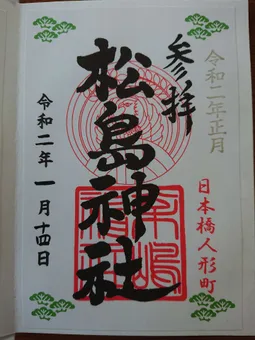 令和二年正月
参拝
日本橋人形町
松島神社
令和二年一月十四日